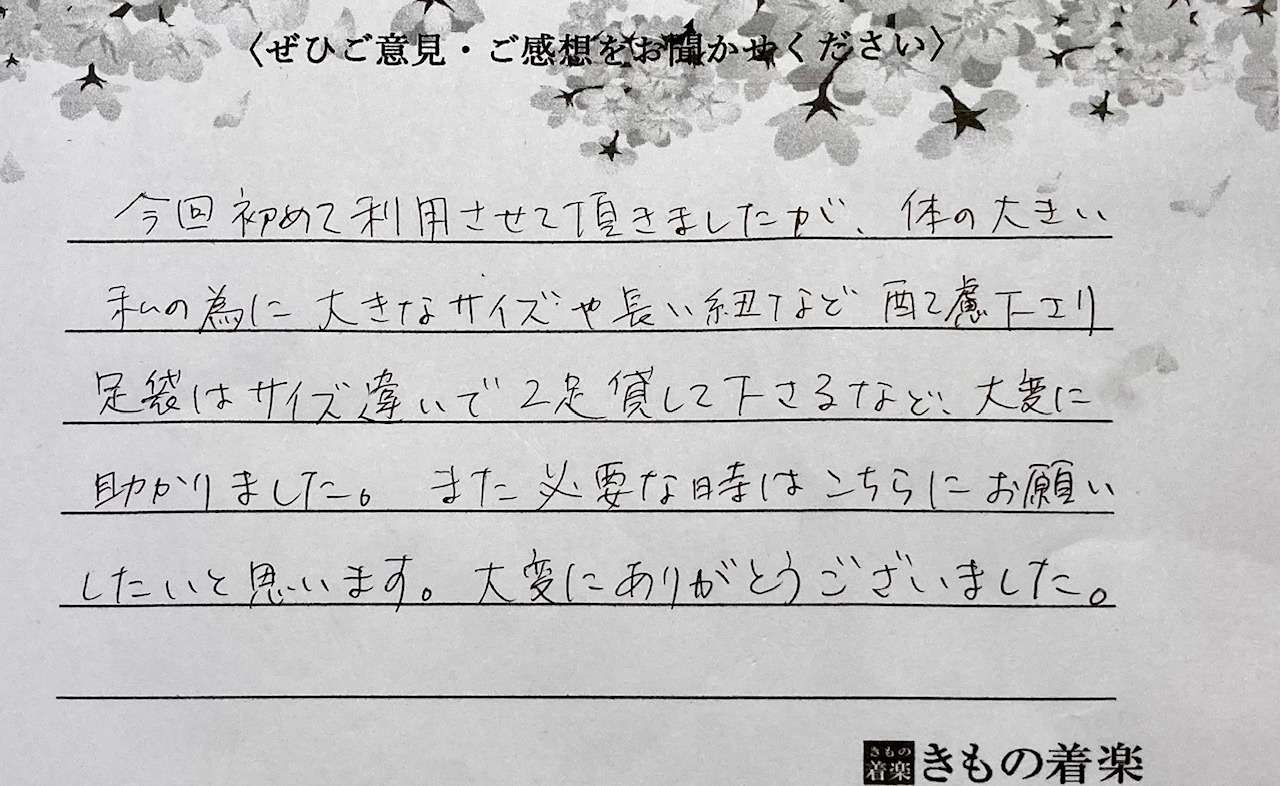 〈ぜひご意見・ご感想をお聞かせください〉
今回初めて利用させて頂きましたが、体の大きい
私の為に大きなサイズや長い紐など配慮下さり
足袋はサイズ違いで2足貸して下さるなど、大変に
助かりました。また必要な時はこちらにお願い
したいと思います。大変にありがとうございました。
きもの
着楽
きもの着楽